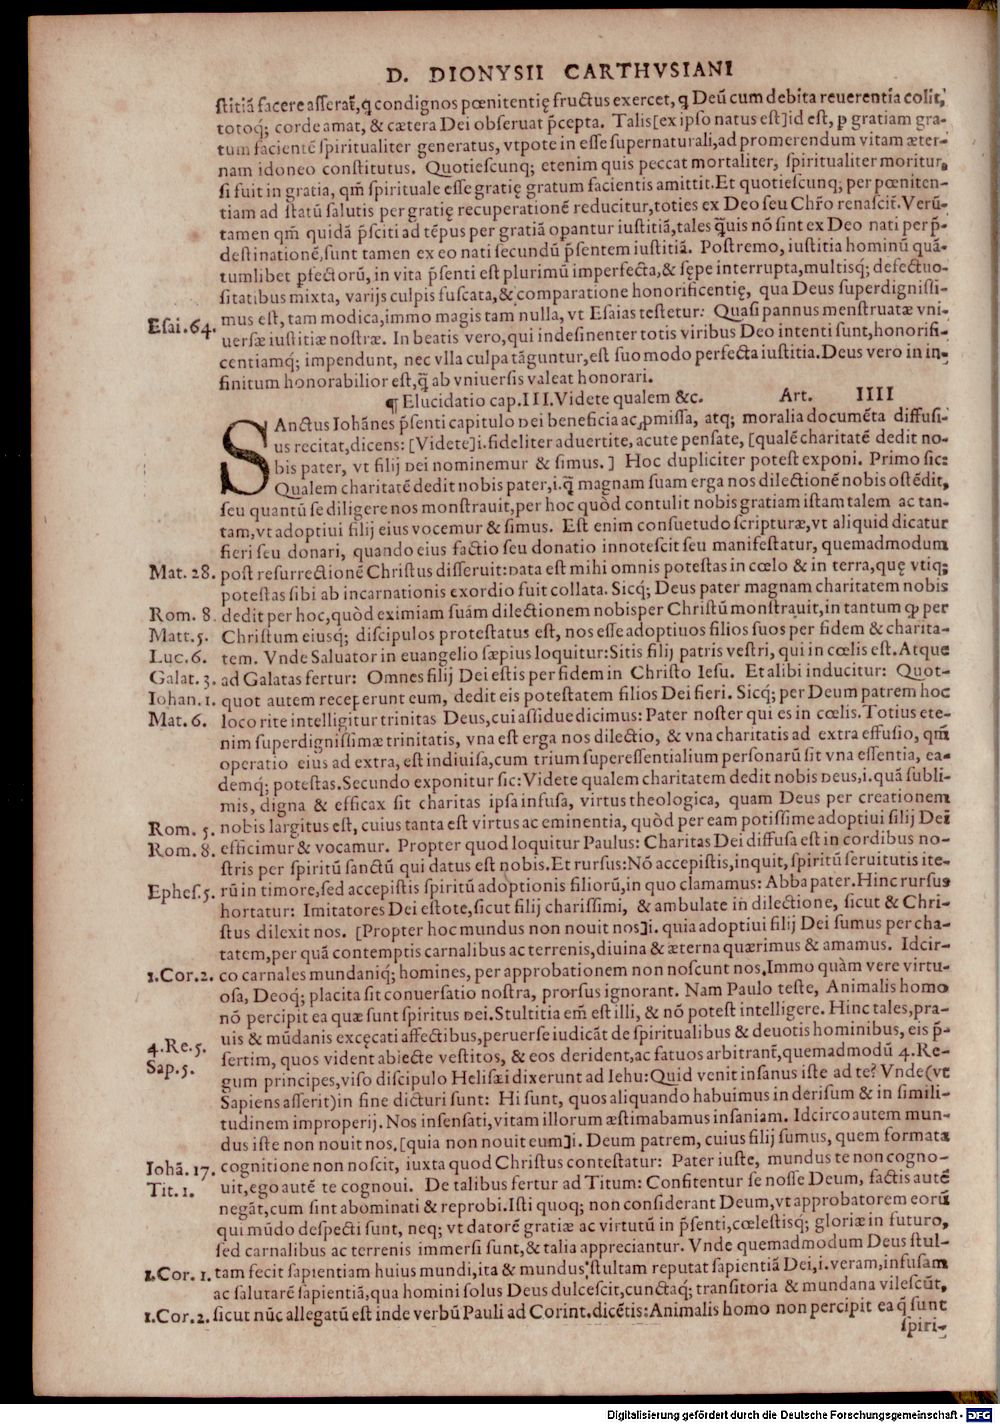 D. DIONYSII CARTHVSIANI
stitiã facere asserat̃, q̃ condignos pœnitentię fructus exercet, q Deũ cum debita reuerentia colit,
totoq́; corde amat, & cætera Dei obseruat p̃cepta. Talis [ex ipso natus est] id est, p gratiam gra-
tum facientẽ spiritualiter generatus, vtpote in esse supernaturali, ad promerendum vitam æter-
nam idoneo constitutus. Quotiescunq; etenim quis peccat mortaliter, spiritualiter moritur,
si fuit in gratia, qm̃ spirituale esse gratię gratum facientis amittit. Et quotiescunq; per pœniten-
tiam ad statũ salutis per gratię recuperationẽ reducitur, toties ex Deo seu Chr̃o renascit̃. Verũ-
tamen qm̃ quidã p̃sciti ad tẽpus per gratiã opantur iustitiã, tales q̃uis nõ sint ex Deo nati per p̃-
destinationẽ, sunt tamen ex eo nati secundũ p̃sentem iustitiã. Postremo, iustitia hominũ quã-
tumlibet pfectorũ, in vita p̃senti est plurimũ imperfecta, & sępe interrupta, multisq́; defectuo-
sitatibus mixta, varijs culpis fuscata, & comparatione honorificentię, qua Deus superdignissi-
Esai. 64. mus est, tam modica, immo magis tam nulla, vt Esaias testetur: Quasi pannus menstruatæ vni-
uersæ iustitiæ nostræ. In beatis vero, qui indesinenter totis viribus Deo intenti sunt, honorifi-
centiamq́; impendunt, nec vlla culpa tãguntur, est suo modo perfecta iustitia. Deus vero in in-
finitum honorabilior est, q̃ ab vniuersis valeat honorari.
¶ Elucidatio cap. III. Videte qualem &c. Art. IIII
SAnctus Iohãnes p̃senti capitulo Dei beneficia ac pmissa, atq; moralia documẽta diffusi-
us recitat, dicens: [Videte] i. fideliter aduertite, acute pensate, [qualẽ charitatẽ dedit no-
bis pater, vt filij Dei nominemur & simus.] Hoc dupliciter potest exponi. Primo sic:
Qualem charitatẽ dedit nobis pater, i. q̃ magnam suam erga nos dilectionẽ nobis ostẽdit,
seu quantũ se diligere nos monstrauit, per hoc quòd contulit nobis gratiam istam talem ac tan-
tam, vt adoptiui filij eius vocemur & simus. Est enim consuetudo scripturæ, vt aliquid dicatur
fieri seu donari, quando eius factio seu donatio innotescit seu manifestatur, quemadmodum
Mat. 28. post resurrectionẽ Christus disseruit: Data est mihi omnis potestas in cœlo & in terra, quę vtiq;
potestas sibi ab incarnationis exordio fuit collata. Sicq́; Deus pater magnam charitatem nobis
Rom. 8. dedit per hoc, quòd eximiam suám dilectionem nobis per Christũ monstrauit, in tantum qp per
Matt. 5. Christum eiusq́; discipulos protestatus est, nos esse adoptiuos filios suos per fidem & charita-
Luc. 6. tem. Vnde Saluator in euangelio sæpius loquitur: Sitis filij patris vestri, qui in cœlis est. Atque
Galat. 3. ad Galatas fertur: Omnes filij Dei estis per fidem in Christo Iesu. Et alibi inducitur: Quot-
Iohan. 1. quot autem receperunt eum, dedit eis potestatem filios Dei fieri. Sicq́; per Deum patrem hoc
Mat. 6. loco rite intelligitur trinitas Deus, cui assidue dicimus: Pater noster qui es in cœlis. Totius ete-
nim superdignissimæ trinitatis, vna est erga nos dilectio, & vna charitatis ad extra effusio, qm̃
operatio eius ad extra, est indiuisa, cum trium superessentialium personarũ sit vna essentia, ea-
demq́; potestas. Secundo exponitur sic: Videte qualem charitatem dedit nobis Deus, i. quã subli-
mis, digna & efficax sit charitas ipsa infusa, virtus theologica, quam Deus per creationem
Rom. 5. nobis largitus est, cuius tanta est virtus ac eminentia, quòd per eam potissime adoptiui filij Dei
Rom. 8. efficimur & vocamur. Propter quod loquitur Paulus: Charitas Dei diffusa est in cordibus no-
stris per spiritũ sanctũ qui datus est nobis. Et rursus: Nõ accepistis, inquit, spiritũ seruitutis ite-
Ephes. 5. rũ in timore, sed accepistis spiritũ adoptionis filiorũ, in quo clamamus: Abba pater. Hinc rursus
hortatur: Imitatores Dei estote, sicut filij charissimi, & ambulate in dilectione, sicut & Chri-
stus dilexit nos. [Propter hoc mundus non nouit nos] i. quia adoptiui filij Dei sumus per cha-
tatem, per quã contemptis carnalibus ac terrenis, diuina & æterna quærimus & amamus. Idcir-
1. Cor. 2. co carnales mundaniq́; homines, per approbationem non noscunt nos. Immo quàm vere virtu-
osa, Deoq́; placita sit conuersatio nostra, prorsus ignorant. Nam Paulo teste, Animalis homo
nõ percipit ea quæ sunt spiritus Dei. Stultitia em̃ est illi, & nõ potest intelligere. Hinc tales, pra-
uis & mũdanis excęcati affectibus, peruerse iudicãt de spiritualibus & deuotis hominibus, eis p̃-
4. Re. 5. sertim, quos vident abiecte vestitos, & eos derident, ac fatuos arbitrant̃, quemadmodũ 4. Re-
Sap. 5. gum principes, viso discipulo Helisæi dixerunt ad Iehu: Quid venit insanus iste ad te? Vnde (vt
Sapiens asserit) in fine dicturi sunt: Hi sunt, quos aliquando habuimus in derisum & in simili-
tudinem improperij. Nos insensati, vitam illorum æstimabamus insaniam. Idcirco autem mun-
dus iste non nouit nos, [quia non nouit eum] i. Deum patrem, cuius filij sumus, quem formata
Iohã. 17. cognitione non noscit, iuxta quod Christus contestatur: Pater iuste, mundus te non cogno-
Tit. 1. uit, ego autẽ te cognoui. De talibus fertur ad Titum: Confitentur se nosse Deum, factis autẽ
negãt, cum sint abominati & reprobi. Isti quoq; non considerant Deum, vt approbatorem eorũ
qui mũdo despecti sunt, neq; vt datorẽ gratiæ ac virtutũ in p̃senti, cœlestisq́; gloriæ in futuro,
sed carnalibus ac terrenis immersi sunt, & talia appreciantur. Vnde quemadmodum Deus stul-
1. Cor. 1. tam fecit sapientiam huius mundi, ita & mundus stultam reputat sapientiã Dei, i. veram, infusam
ac salutarẽ sapientiã, qua homini solus Deus dulcescit, cunctaq́; transitoria & mundana vilescũt,
1. Cor. 2. sicut nũc allegatũ est inde verbũ Pauli ad Corint. dicẽtis: Animalis homo non percipit ea q̃ sunt
spiri-
Digitalisierung gefördert durch die Deutsche Forschungsgemeinschaft - DFG